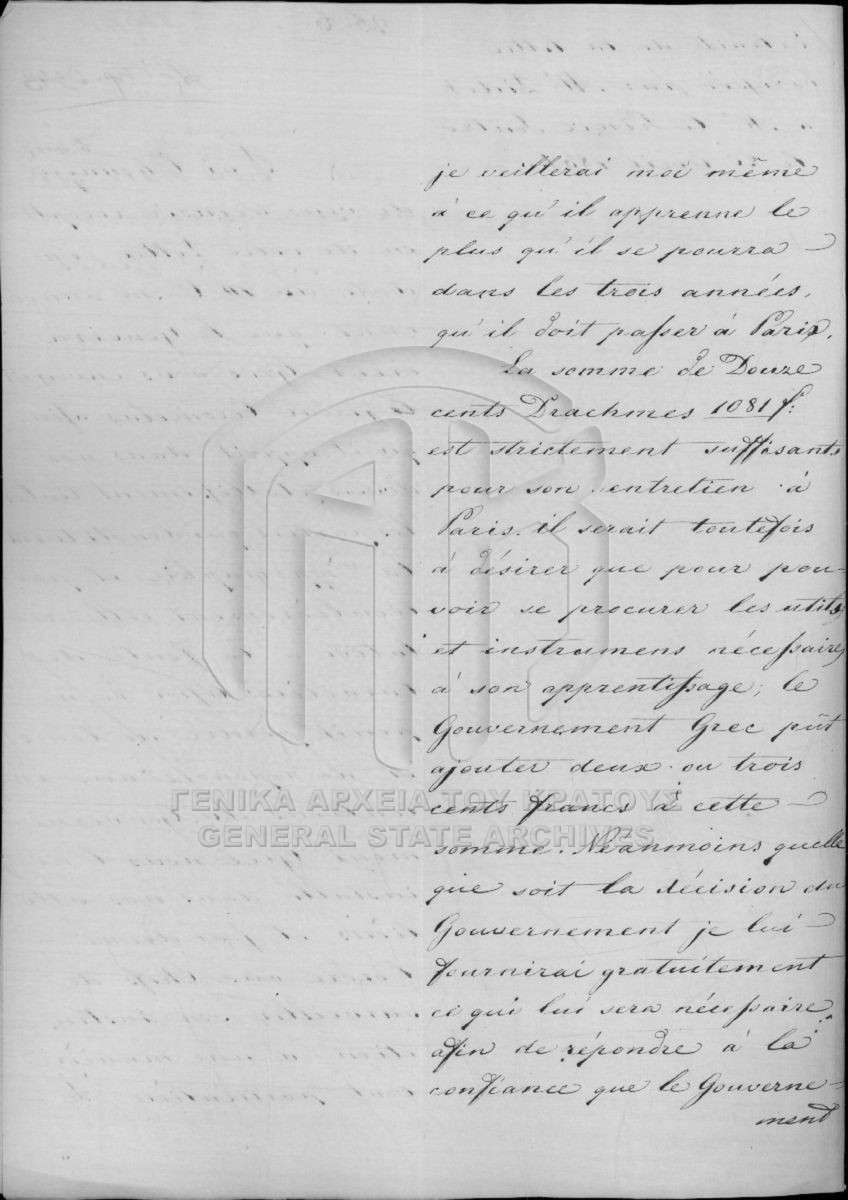 je veillerai moi même
à ce qu'il apprenne le
plus qu'il se pourra
dans les trois années,
qu'il doit passer à Paris.
La somme de Douze
cents Drachmes 1081 f:
est strictement suffisants
pour son entretien à
Paris. il serait toutefois
à désirer que pour pou-
voir se procurer les utils
et instrumens nécessaires
à son apprentissage; le
Gouvernement Grec pût
ajouter deux ou trois
ΓΕΝΙΚΑ ΑΡΧΕΙΑ ΤΟΥ ΚΡΑΤΟΥΣ
cents francs à cette
GENERAL STATE ARCHIVES
somme. Néanmoins quelle
que soit la décision du
Gouvernement je lui
fournirai gratuitement
ce qui lui sera nécessaire
afin de répondre à la
confiance que le Gouverne-
ment